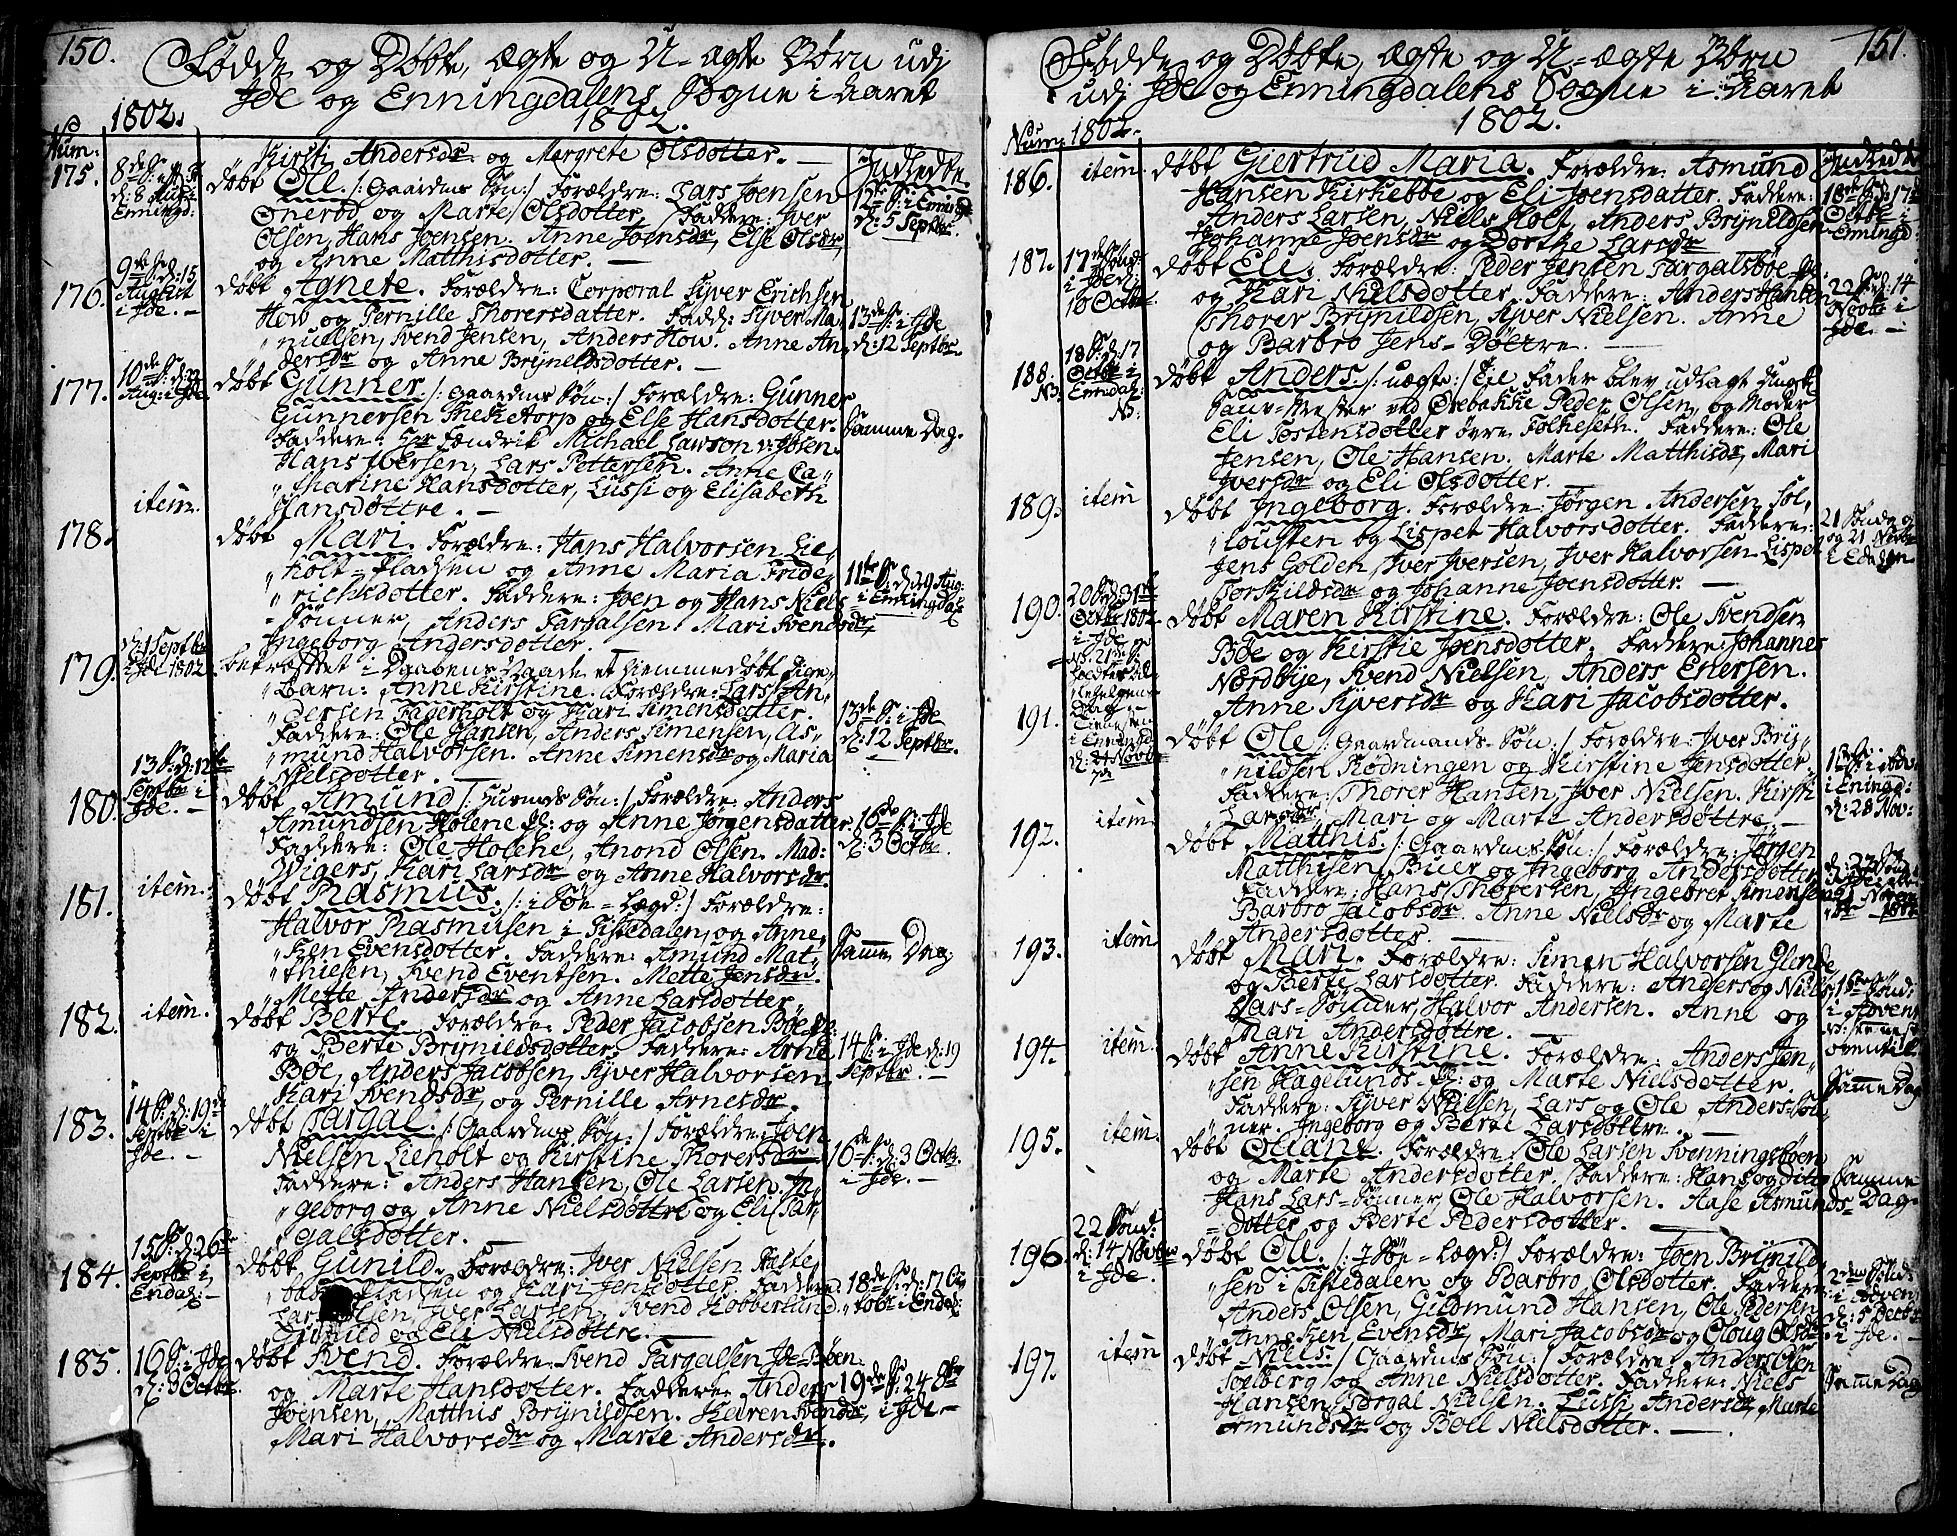 150.
Fødde og Døbte, ægte og U-ægte Børn udi
Jde og Enningdalens Sogne i Aaret
1802.
1802.
Num:
Kirsti Andersdr og Margrete Olsdotter. —
Indledde.
175.
d: 8 Aug: i
Enningd.
døbt Ole /: Gaardms Søn :/ Forældre: Lars Joensen
Ønerød og Marte Olsdotter, Faddere: Iver
Olsen, Hans Joensen. Anne Joensdr, Else Olsdr,
og Anne Matthisdotter. —
12te S: i Enningd
d: 5 Septbr.
176.
9de S: d: 15
August
i Jde. —
døbt Agnete. Forældre: Corporal Syver Erichsen
How og Pernille Thorersdatter. Fadd: Syver Ma-
nuelsen, Svend Jensen, Anders How. Anne An-
dersdr og Anne Brynildsdotter. —
13de S: i Jde
d: 12 Septbr.
177.
10de S: d: 22
Aug: i Jde.
døbt Gunner /: Gaardms Søn :/ Forældre: Gunner
Gunnersen Thketorp og Else Hansdotter.
Faddere: Hr Fændrik Michael Lawson v: Ibsen
Hans Iversen, Lars Pettersen. Anne Ca-
tharine Hansdotter, Lussi og Elisabeth
Hansdøttre. —
Samme Dag.
178.
item.
døbt Mari. Forældre: Hans Halvorsen Lie-
holt-Pladsen og Anne Maria Fride-
richsdotter. Faddere: Joen og Hans Niels
Sønner, Anders Targalsen, Mari Svendsdr,
Ingeborg Andersdotter.
11te S: d: 29 Aug:
i Enningdal
179.
d: 1 Septbr
Jde 1802.
betræffet i Daabens Naade et hiemmedøbt Pige-
Barn: Anne Kirstine. Forældre: Lars An-
dersen Fagerholt og Kari Simensdatter.
Faddere: Ole Hansen, Anders Simensen, As-
mund Halvorsen. Anne Simensdr og Maria
Nielsdotter. —
13de S: i Jde
d: 12 Septbr.
180.
13 S: d: 12te
Septbr i
Jde. —
døbt Amund /: Huusmds Søn :/ Forældre: Anders
Amundsen Holene Pl: og Anne Jørgensdatter.
Faddere: Ole Holene, Anond Olsen. Mad:
Wigers, Kari Larsdr og Anne Halvorsdr.
16de S: i Jde
d: 3 Octbr.
181.
item.
døbt Rasmus. /: i Søe-Lægd :/ Forældre:
Halvor Rasmusen i Tistedalen, og Anne-
Ken Evensdotter. Faddere: Asmund Mat-
thiesen, Svend Eventsen. Mette Jensdr.
Mette Andersdr og Anne Larsdotter.
Samme Dag.
182.
item.
døbt Berte. Forældre: Peder Jacobsen Bøe Pl:
og Berte Brynildsdotter. Faddere: Arne
Bøe, Anders Jacobsen, Syver Halvorsen,
Kari Svendsdr og Pernille Arnesdr.
14 S: i Jde d: 19
Septbr. —
183.
14 S: d: 19de
Septbr i
Jde. —
døbt Targal. /: Gaardms Søn :/ Forældre: Joen
Nielsen Lieholt og Kirstine Thorersdr
Faddere: Anders Hansen, Ole Larsen. In-
geborg og Anne Nielsdøttre og Eli Tar-
galsdotter. —
16de S: d: 3 Octbr.
i Jde. —
184.
15 S: d: 26de
Septbr i
Endal: —
døbt Gunild. Forældre: Iver Nielsen Taste-
Pladsen og Kari Jensdotter. Faddere:
Lars Olsen, Iver Larsen, Svend Kobberlund.
Gunild og Eli Nielsdøttre. —
18de S: d: 17 Oc-
tobr i Endal:
185.
16 S: i Jde
d: 3 Octbr.
døbt Svend. Forældre: Svend Targalsen Jde-Bøen
og Marte Hansdotter. Faddere: Anders
Joensen, Matthis Brynildsen. Karen Svendsdr,
Mari Halvorsdr og Marte Andersdr.
19de S: 24 Octbr
i Jde. —
151.
Fødde og Døbte, ægte og U-ægte Børn
udi Jde og Enningdalens Sogne i Aaret
1802.
Num:
1802.
Indledde
186.
item.
døbt Giertrud Maria. Forældre: Asmund
Hansen Kirkebøe og Eli Joensdatter. Faddere:
Anders Larsen, Niels Holt, Anders Brynildsen
Johanne Joensdr og Dorthe Larsdr
18de S: d: 17de
Octbr i
Enningd
187.
17de Sønd:
i Jde d:
10 Octbr.
døbt Eli. Forældre: Peder Jensen Targalsbøe Pl:
og Kari Nielsdotter. Faddere: Anders Hansen,
Thorer Brynildsen, Syver Nielsen. Anne
og Barbro Jens-Døttre. —
22 S: d: 14
Novbr i
Jde. —
188.
NB.
18 S: d: 17
Octbr i
Enndal:
NB:
døbt Anders /: uægte :/ Til Fader blev udlagt Ungk:
Peder Olsen, og Moder
Eli Tostensdotter øvre Folkeseth. Faddere: Ole
Jensen, Ole Hansen. Marte Matthisdr, Mari
Iversdr og Eli Olsdotter. —
189.
item
døbt Ingeborg. Forældre: Jørgen Andersen Tol-
lousten og Lispet Halvorsdotter. Faddere:
Jens Golden, Iver Iversen, Iver Halvorsen. Lispet
Torkildsdr og Johanne Joensdotter. —
21 Søndag
og 21 Novbr
i Edalen.
190.
20 S: d: 31te
Octbr 1802
i Jde
døbt Maren Kirstine. Forældre: Ole Svendsen
Bøe og Kirstie Joensdotter. Faddere: Johannes
Nordbye, Svend Nielsen, Anders Enersen.
Anne Syversdr og Kari Jacobsdotter.
191.
i Enningd
d: 21 Novbr
døbt Ole /: Gaardmands-Søn :/ Forældre: Iver Bry-
nildsen Rødningen og Kirstine Jensdotter,
Faddere: Thorer Hansen, Iver Nielsen. Kirsti
Larsdr, Mari og Marte Andersdøttre —
i Enningd:
d: 28 Nov:
192.
item.
døbt Matthis /: Gaardms Søn :/ Forældre: Jørgen
Matthisen Buer og Ingeborg Andersdotter
Faddere: Hans Thorersen, Ingebret Simensen
Barbro Jacobsdr. Anne Nielsdr og Marte
Andersdotter. —
193.
item
døbt Mari. Forældre: Simen Halvorsen Glende
og Berte Larsdotter. Faddere: Anders og Niels
Lars-Sønner, Halvor Andersen. Anne og
Mari Andersdøttre. —
1ste Sønd:
i Advent
194.
item.
døbt Anne Kirstine. Forældre: Anders Jen-
sen Hagelunds-Pl: og Marte Nielsdotter.
Faddere: Syver Nielsen, Lars og Ole Anders-Søn-
ner. Ingeborg og Berte Larsdøttre. —
Samme Dag
195.
item.
døbt Oliane. Forældre Ole Larsen Svenningsbøen
og Marte Andersdotter. Faddere: Hans og ditto
Hans Lars-Sønner, Ole Halvorsen. Aase Asmunds-
dotter og Berte Pedersdotter. —
Samme
Dag.
196.
22 Sønd:
d: 14 Novbr
i Jde.
døbt Ole. /: i Søe-Lægd :/ Forældre: Joen Brynild-
sen i Tistedalen og Barbro Olsdotter. Faddere:
Anders Olsen, Guldmund Hansen, Ole Pedersen.
Anne Ken Evensdr, Mari Jacobsdr og Oloug Olsdr.
2den Sønd:
i Advent
d: 5 Decbr
i Jde. —
197.
item
døbt Niels /: Gaardms Søn :/ Forældre: Anders Olsen
Soelberg og Anne Nielsdotter. Faddere: Niels
Hansen, Torgal Nielsen. Lussi Andersdr, Marte
Asmundsdr og Boel Nielsdotter. —
Samme Dag